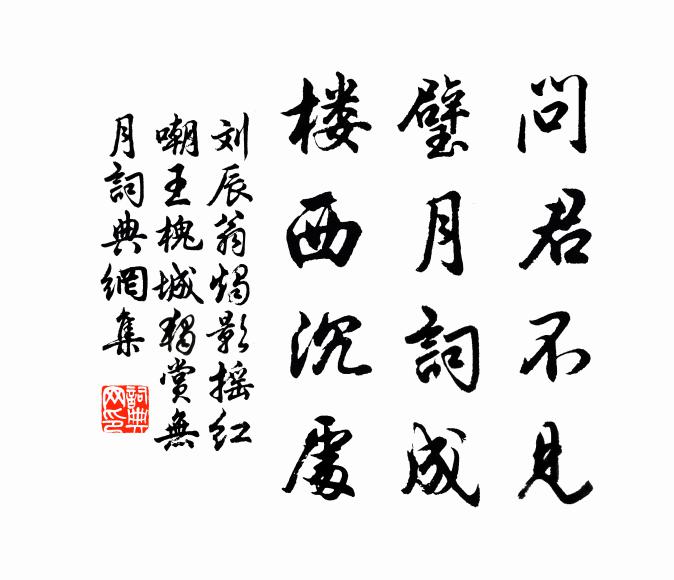 问君不见
璧月詞成
楼西沉處
刘辰翁烛影摇红
嘲王槐城独赏無
月詞典網集
詞典
网印